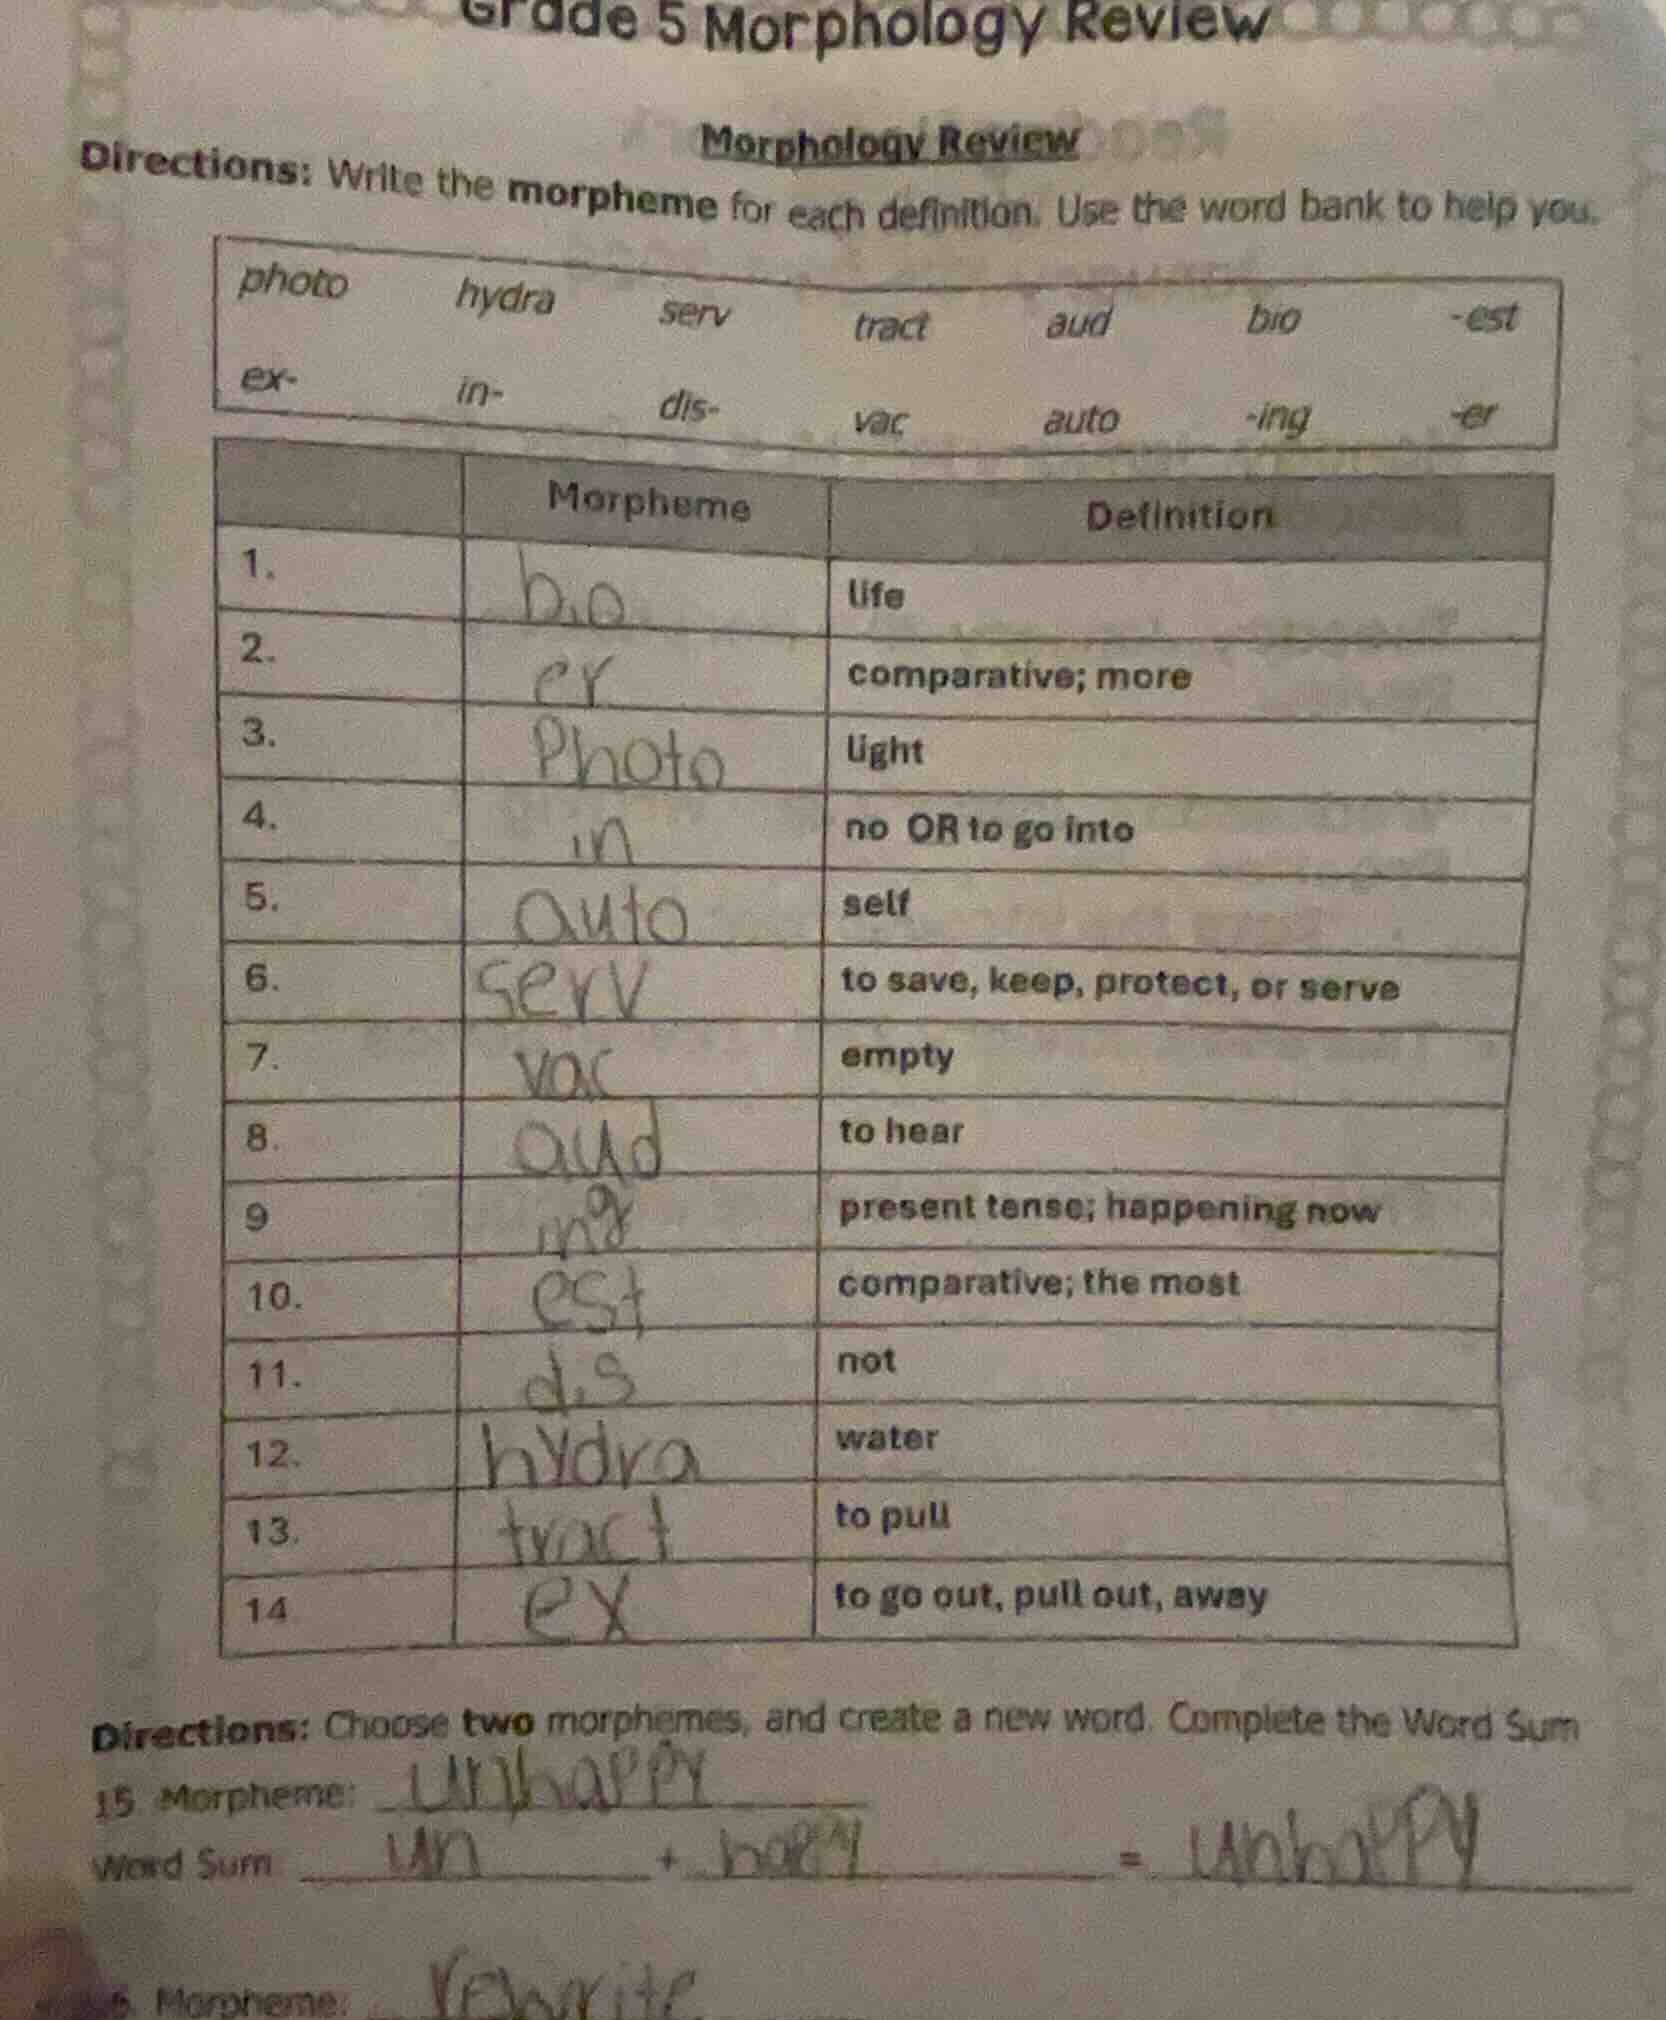 Grade 5 Morphology Review
Morphology Review
Directions: Write the morpheme for each definition. Use the word bank to help you.
photo hydra serv tract aud bio -est
ex- in- dis- vac auto -ing -er
Morpheme Definition
1. bio life
2. er comparative; more
3. Photo light
4. in no OR to go into
5. auto self
6. serv to save, keep, protect, or serve
7. vac empty
8. aud to hear
9 ing present tense; happening now
10. est comparative; the most
11. dis not
12. hydra water
13. tract to pull
14 ex to go out, pull out, away
Directions: Choose two morphemes, and create a new word. Complete the Word Sum
15 Morpheme: unhappy
Word Sum un + happy = unhappy
Morpheme: